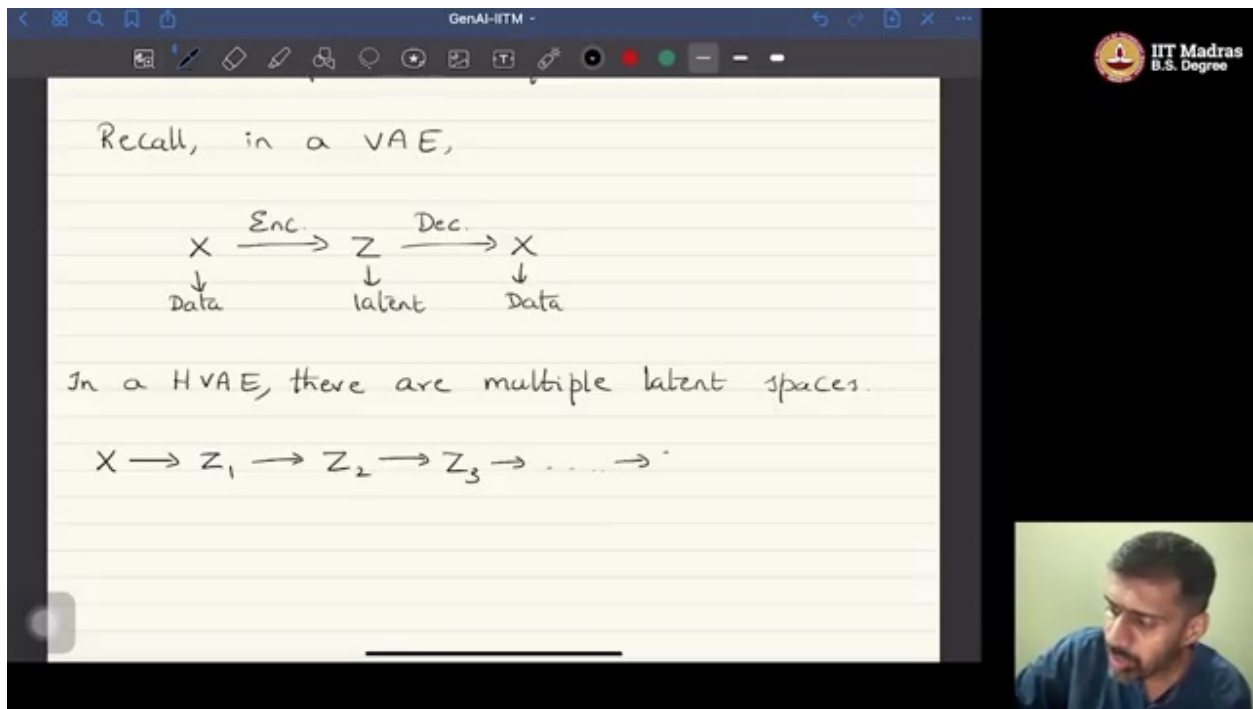 GenAI-IITM
IIT Madras
B.S. Degree
Recall, in a VAE,
Enc. Dec.
X → Z → X
↓ ↓ ↓
Data latent Data
In a HVAE, there are multiple latent spaces.
X → Z₁ → Z₂ → Z₃ → ..... →